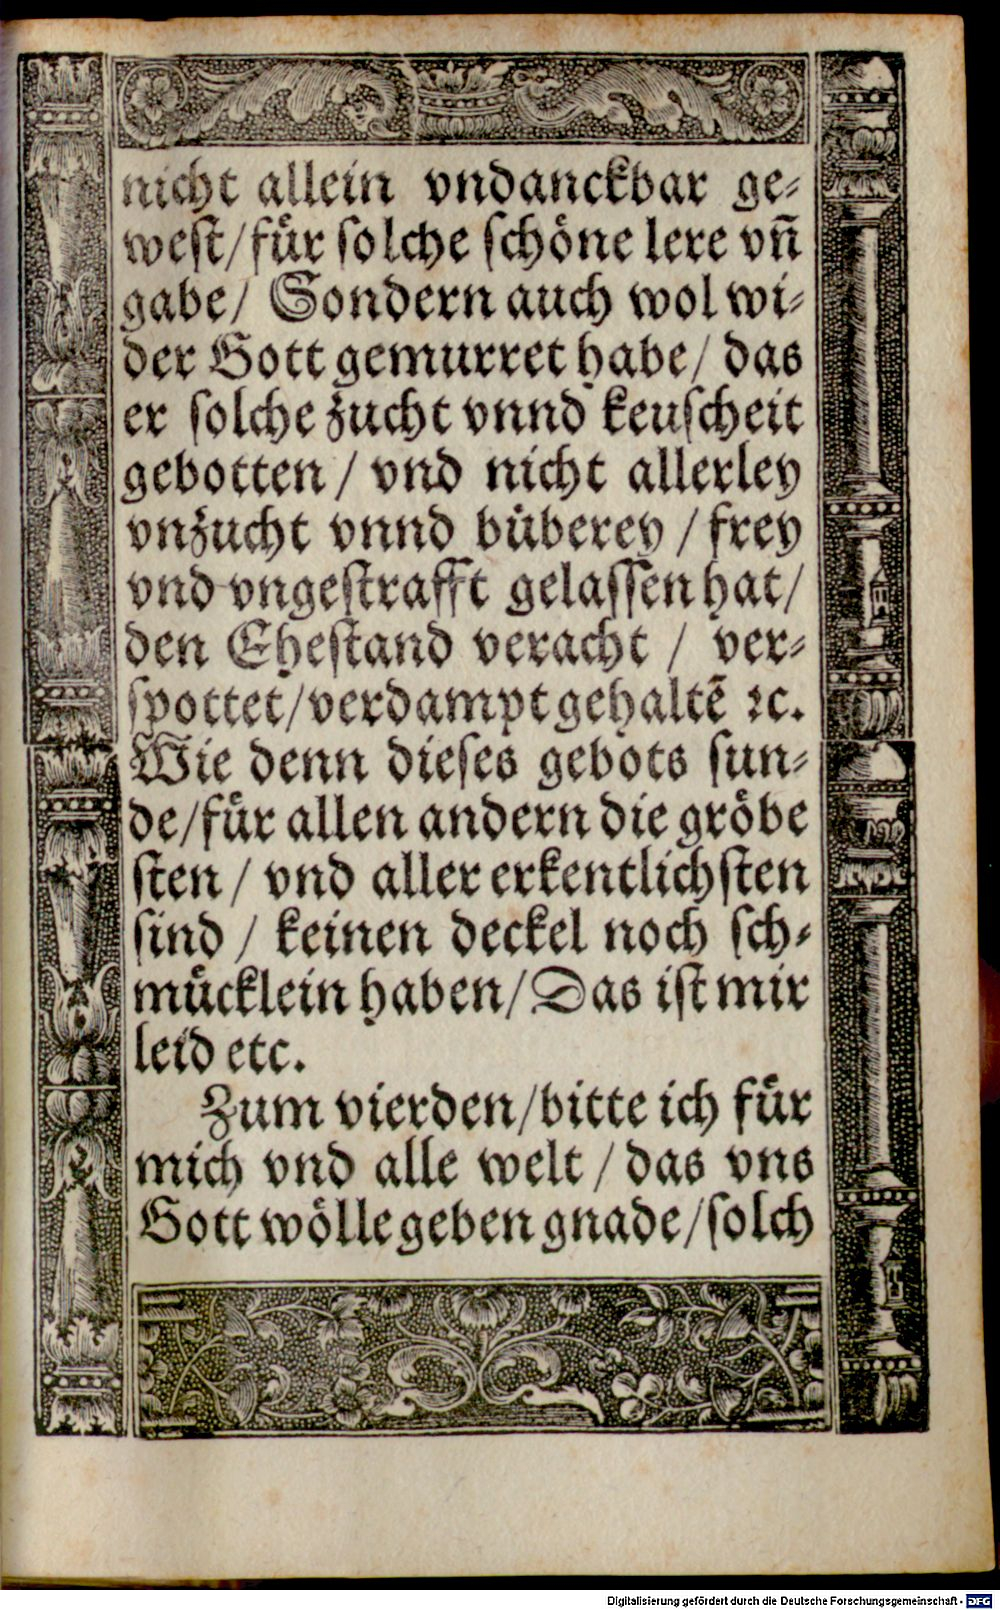 nicht allein vndanckbar ge⸗
west/für solche schöne lere vñ
gabe/ Sondern auch wol wi⸗
der Gott gemurret habe/ das
er solche zucht vnnd keuscheit
gebotten / vnd nicht allerley
vnzucht vnnd büberey / frey
vnd vngestrafft gelassen hat/
den Ehestand veracht / ver⸗
spottet/verdampt gehaltē ⁊c.
Wie denn dieses gebots sun⸗
de/für allen andern die gröbe
sten / vnd aller erkentlichsten
sind / keinen deckel noch sch⸗
mücklein haben/Das ist mir
leid etc.
Zum vierden/bitte ich für
mich vnd alle welt / das vns
Gott wölle geben gnade/solch
Digitalisierung gefördert durch die Deutsche Forschungsgemeinschaft - DFG